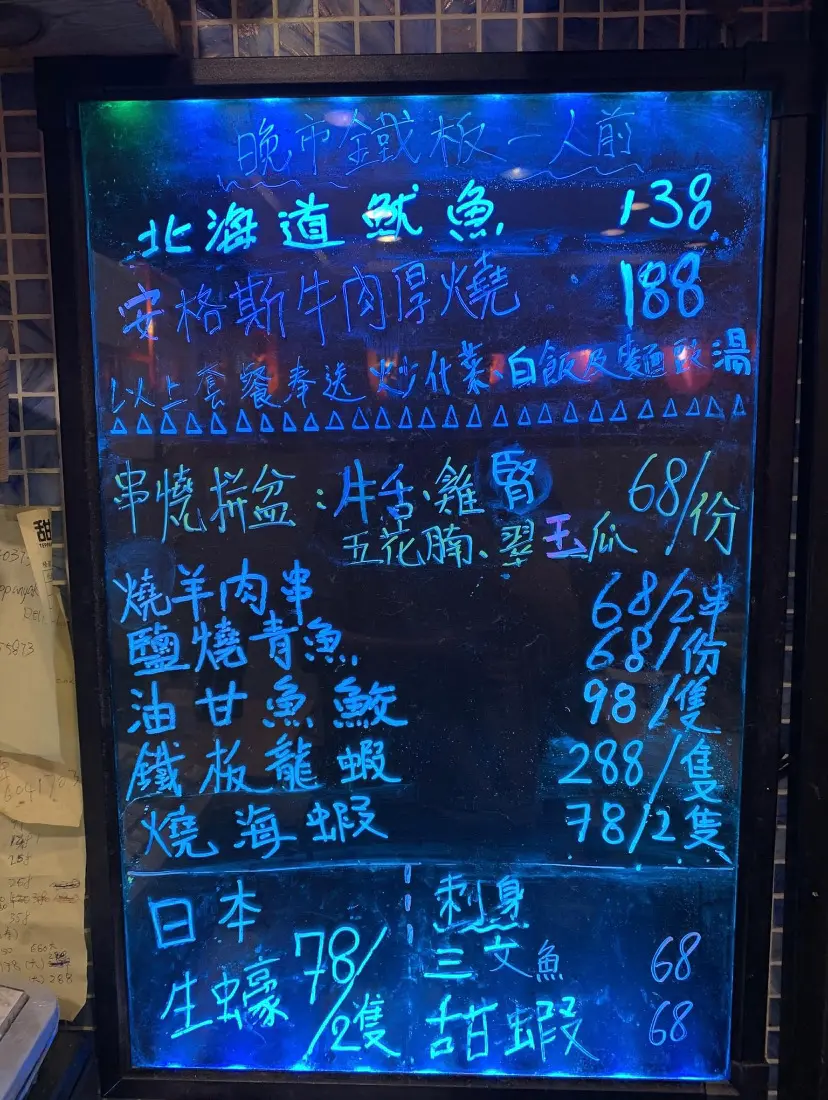 晚市鐵板一人前
北海道魷魚 138
安格斯牛肉厚燒 188
以上套餐奉送炒什菜、白飯及麵豉湯
串燒拼盆：牛舌、雞腎 68/份
五花腩、翠玉瓜
燒羊肉串 68/2串
鹽燒青魚 68/份
油甘魚鮫 98/隻
鐵板龍蝦 288/隻
燒海蝦 78/2隻
日本
生蠔 78/2隻
刺身
三文魚 68
甜蝦 68
甜